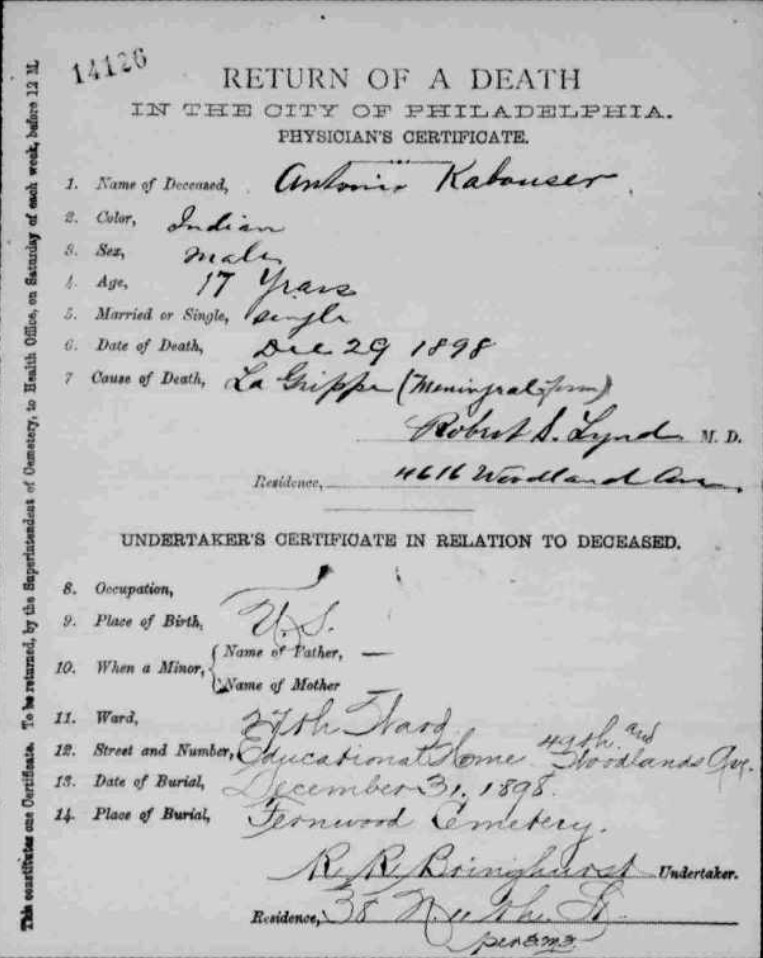 14126
RETURN OF A DEATH
IN THE CITY OF PHILADELPHIA.
PHYSICIAN'S CERTIFICATE.
1. Name of Deceased, Antonio Kabouser
2. Color, Indian
3. Sex, male
4. Age, 17 Years
5. Married or Single, single
6. Date of Death, Dec 29 1898
7 Cause of Death, La Grippe (Meningeal form)
Robert S. Lynd M. D.
Residence, 4616 Woodland Ave.
UNDERTAKER'S CERTIFICATE IN RELATION TO DECEASED.
8. Occupation,
9. Place of Birth, U.S.
10. When a Minor, { Name of Father, —
Name of Mother —
11. Ward, 27th Ward
12. Street and Number, Educational Home 49th and Woodlands Ave.
13. Date of Burial, December 31, 1898.
14. Place of Burial, Fernwood Cemetery.
R. R. Bringhurst Undertaker.
Residence, 38 N. 11th St.
per
This constitutes one Certificate. To be returned, by the Superintendent of Cemetery, to Health Office, on Saturday of each week, before 12 M.